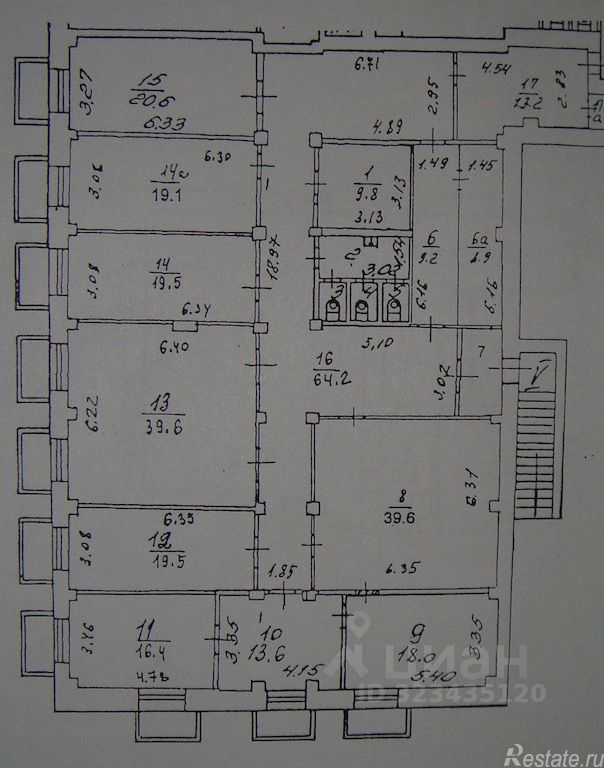 6.71
4.54
17
13.2
2.83
3.27
15
20.6
6.33
2.95
4.89
6.30
14а
19.1
3.06
1
9.8
3.13
3.13
1.49
1.45
6
9.2
6а
8.9
14
19.5
3.08
6.34
18.97
2
1.54
6.16
6.16
6.40
5.10
16
64.2
7
3.02
13
39.6
6.22
8
39.6
6.31
6.35
6.35
12
19.5
3.08
1.85
11
16.4
3.46
4.78
10
13.6
3.35
4.15
9
18.0
3.35
5.40
циан
ID 323435120
Restate.ru